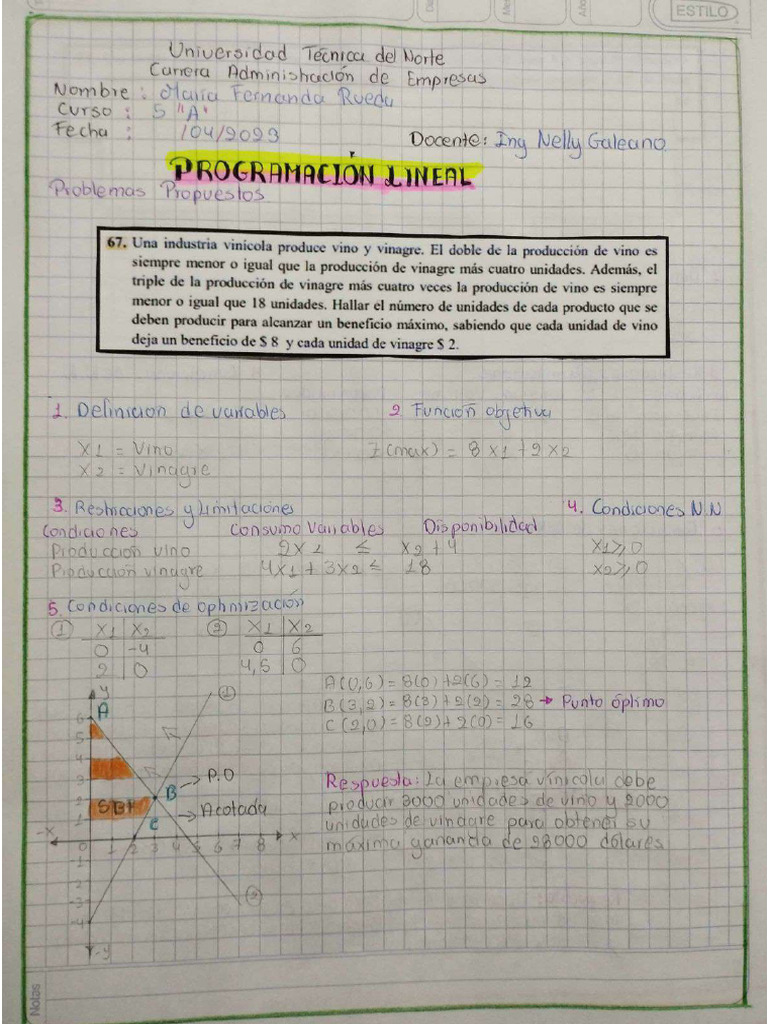 ESTILO
Universidad Técnica del Norte
Carrera Administración de Empresas
Nombre : María Fernanda Rueda
Curso : 5 "A"
Fecha : /04/2023 Docente: Ing Nelly Galeano
PROGRAMACIÓN LINEAL
Problemas Propuestos
67. Una industria vinícola produce vino y vinagre. El doble de la producción de vino es
siempre menor o igual que la producción de vinagre más cuatro unidades. Además, el
triple de la producción de vinagre más cuatro veces la producción de vino es siempre
menor o igual que 18 unidades. Hallar el número de unidades de cada producto que se
deben producir para alcanzar un beneficio máximo, sabiendo que cada unidad de vino
deja un beneficio de $ 8 y cada unidad de vinagre $ 2.
1. Definición de variables 2 Función objetiva
X1 = Vino Z(max) = 8 x1 +2 x2
X2 = Vinagre
3. Restricciones y Limitaciones 4. Condiciones N.N
Condiciones Consumo Variables Disponibilidad
Producción vino 2x1 ≤ x2 + 4 x1≥0
Producción vinagre 4x1 + 3x2 ≤ 18 x2≥0
5. Condiciones de optimización
① x1 x2 ② x1 x2
0 -4 0 6
2 0 4,5 0
A(0,6) = 8(0) +2(6) = 12
B(3,2) = 8(3) + 2(2) = 28 → Punto óptimo
C(2,0) = 8(2)+ 2(0) = 16
y ①
A
6
5
4
3
2
1
P.O
B
SBF
Acotada
C
-x 0 1 2 3 4 5 6 7 8 x
-1
-2
-3
-4
-y
②
Respuesta: La empresa vinícola debe
producir 3000 unidades de vino y 2000
unidades de vinagre para obtener su
máxima ganancia de 28000 dólares
Notas